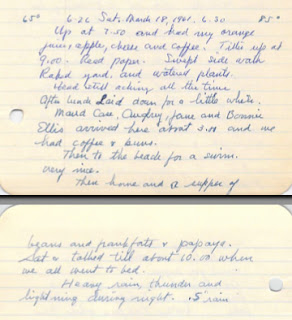 65° 6.26 Sat. March 18, 1961. 6.30 85°
Up at 7.50 and had my orange
juice, apple, cheese and coffee. Tillie up at
9.00. Read paper. Swept side walk
Raked yard, and watered plants.
Head still aching all the time
After lunch laid down for a little while.
Maud Case, Audrey, Jane and Bonnie
Ellis arrived here about 3.00 and we
had coffee & buns.
Then to the beach for a swim.
very nice.
Then home and a supper of
beans and frankfats & papaya.
Sat & talked till about 10.00 when
we all went to bed.
Heavy rain, thunder and
lightning during night. .5 rain